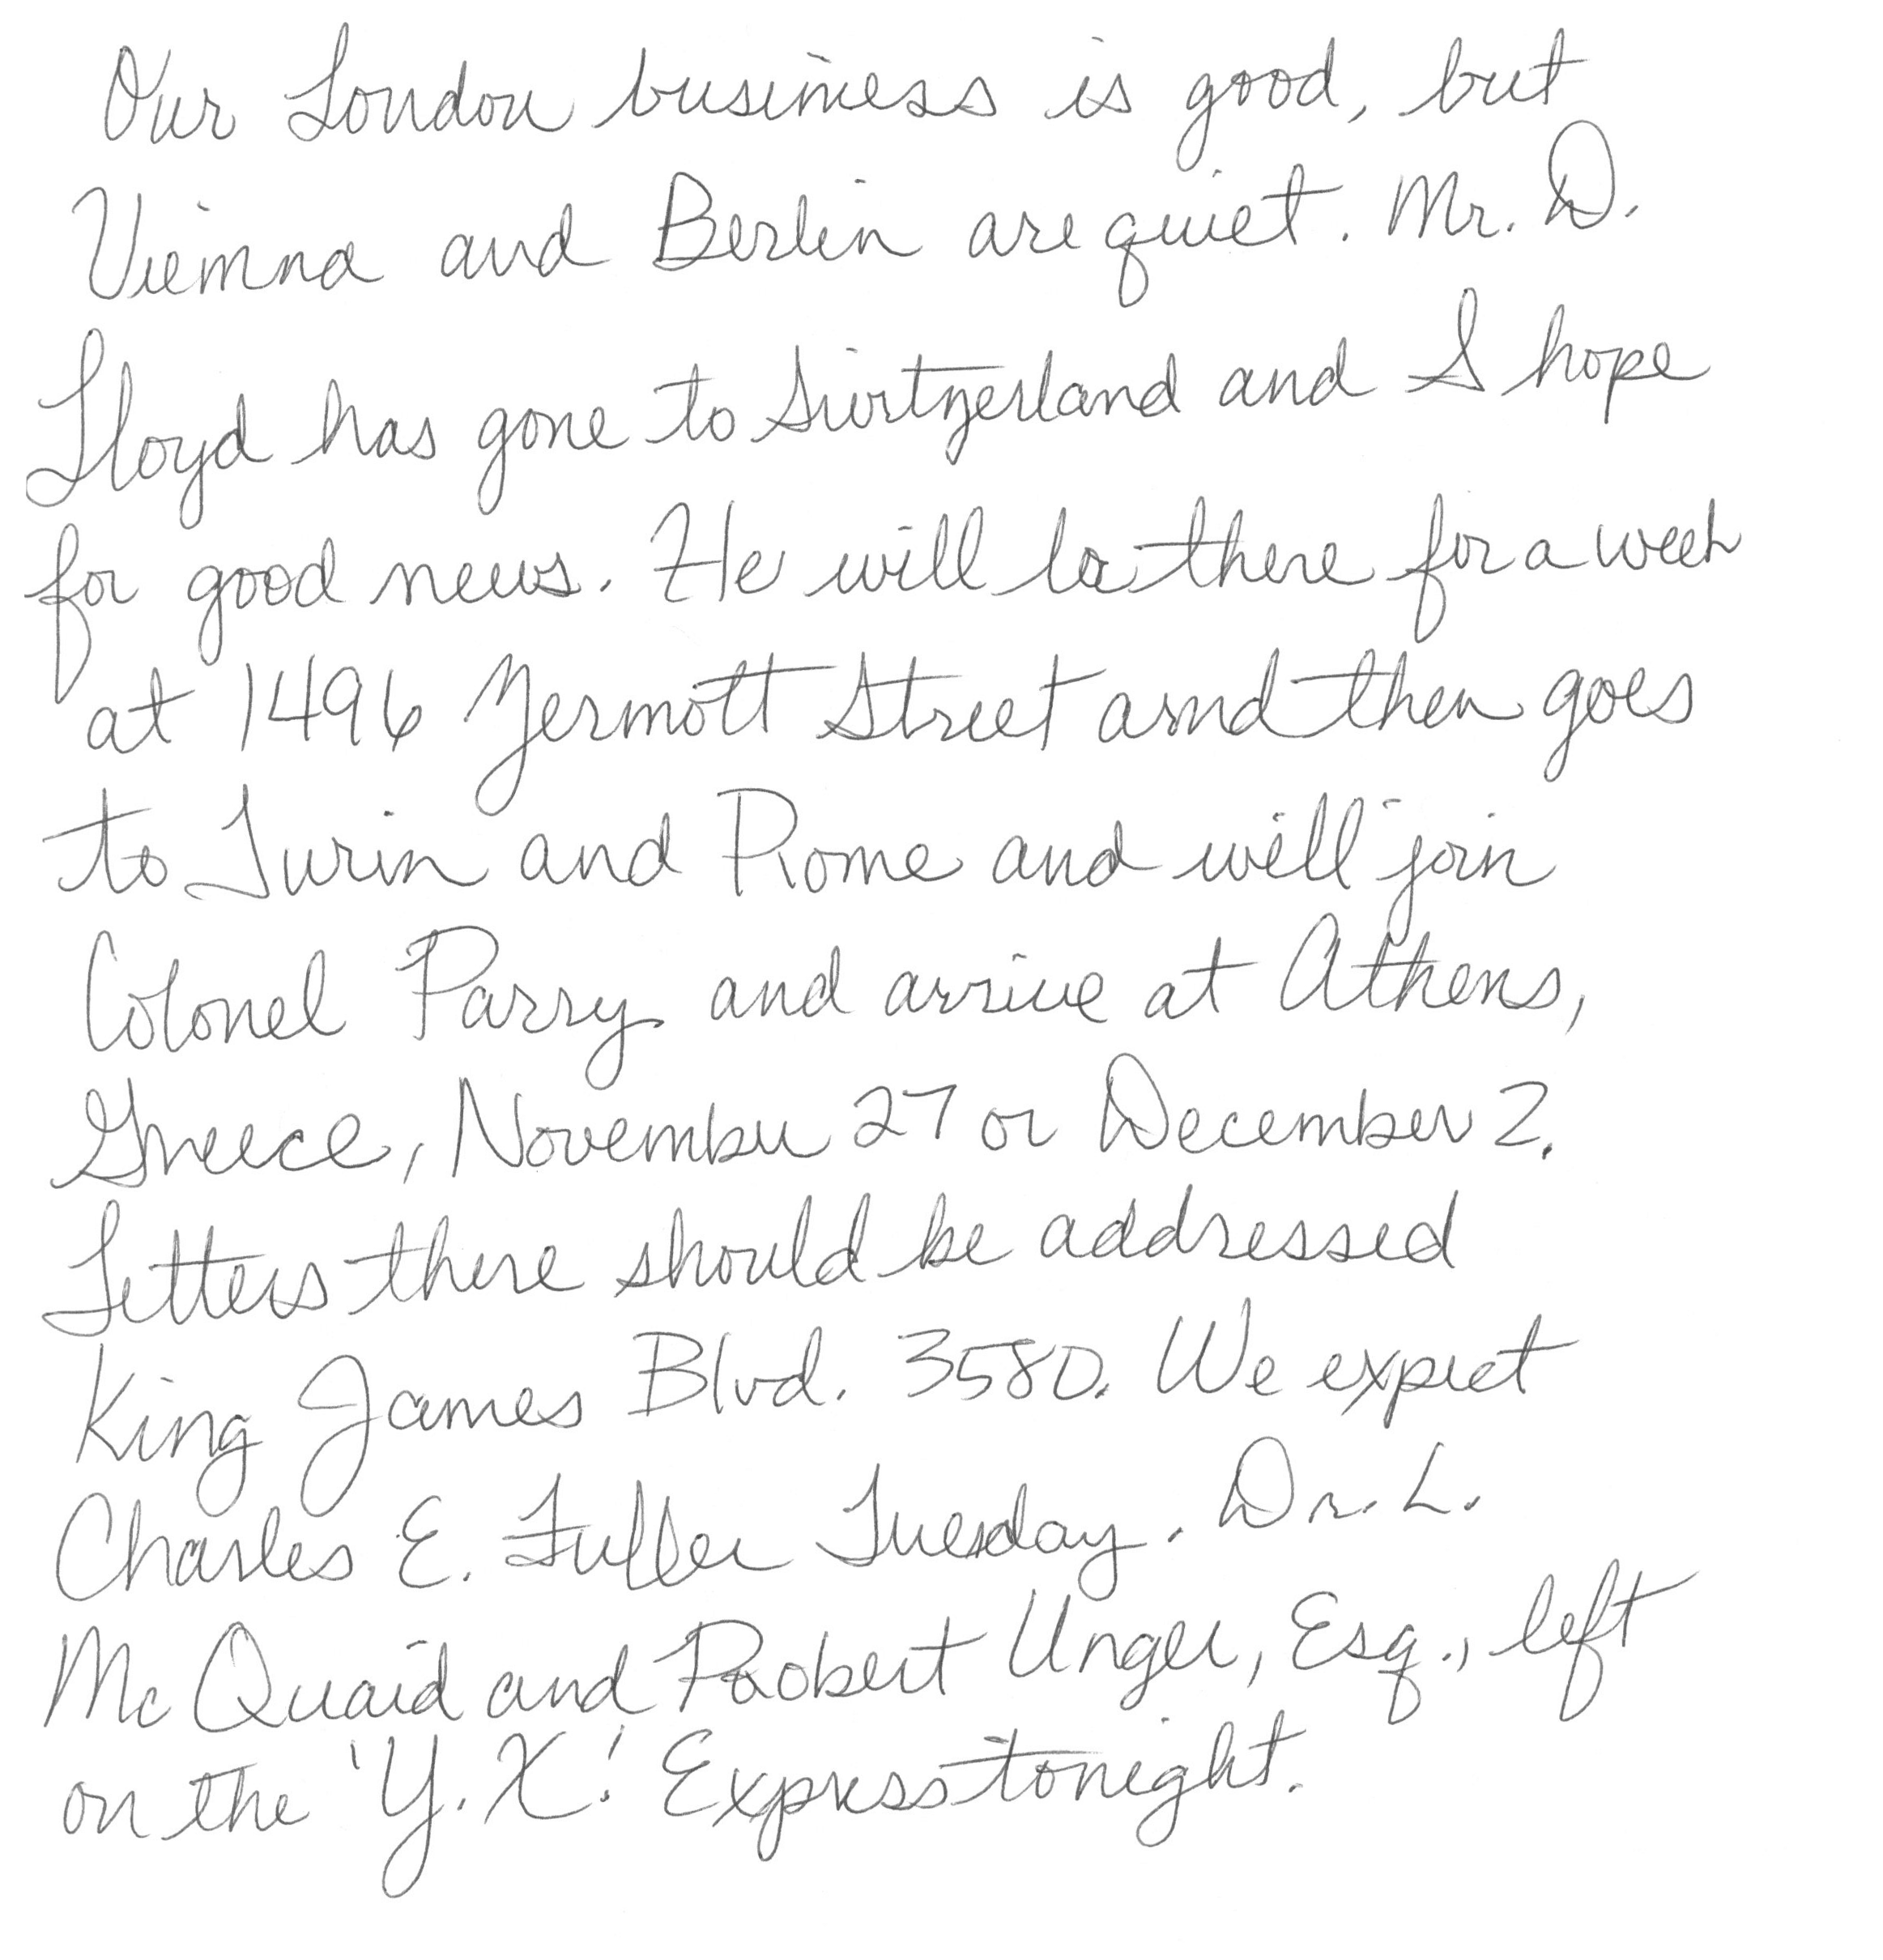 Our London business is good, but
Vienna and Berlin are quiet. Mr. D.
Lloyd has gone to Switzerland and I hope
for good news. He will be there for a week
at 1496 Zermott Street and then goes
to Turin and Rome and will join
Colonel Parry and arrive at Athens,
Greece, November 27 or December 2.
Letters there should be addressed
King James Blvd. 3580. We expect
Charles E. Fuller Tuesday. Dr. L.
McQuaid and Robert Unger, Esq., left
on the 'Y.X.' Express tonight.